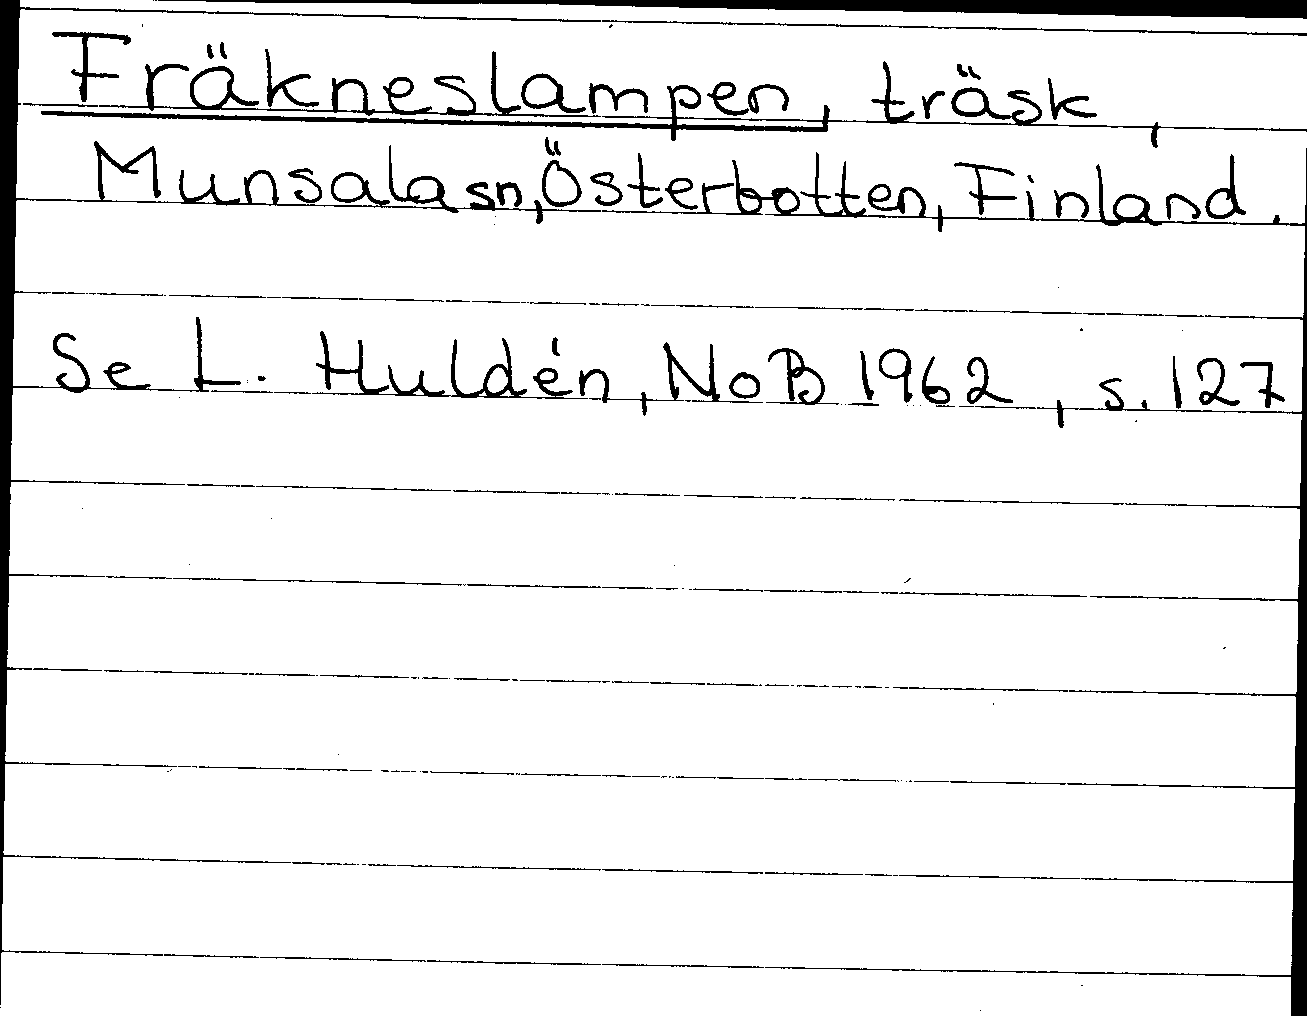 Fräkneslampen, träsk,
Munsala sn, Österbotten, Finland.
Se L. Huldén, NoB 1962, s. 127